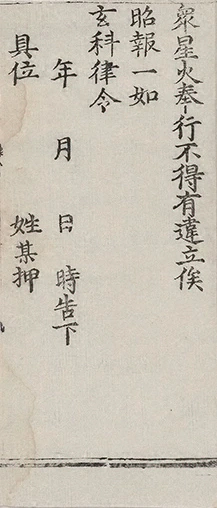 衆星火奉行不得有違立俟
昭報一如
玄科律令
年 月 日 時告下
具位 姓某押